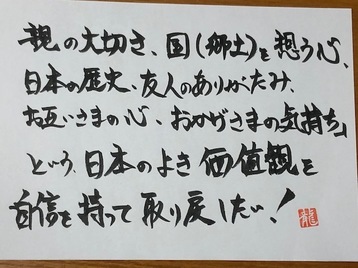 親の大切さ、国(郷土)を想う心、
日本の歴史、友人のありがたみ、
お互いさまの心、おかげさまの気持ち」
という、日本のよき価値観を
自信を持って取り戻したい!
龍